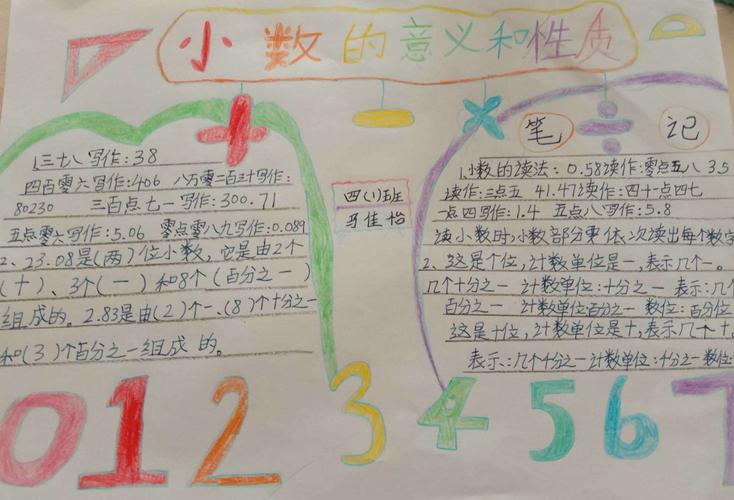 小数的意义和性质
1、三十八写作:38
四百零六写作:406 八万零二百三十写作:
80230 三百点七一写作:300.71
五点零六写作:5.06 零点零八九写作:0.089
2、23.08是(两)位小数,它是由2个
(十)、3个(一)和8个(百分之一)
组成的。2.83是由(2)个一、(8)个十分之一
和(3)个百分之一组成的。
四(1)班
马佳怡
笔记
1.小数的读法:0.58读作:零点五八 3.5
读作:三点五 41.47读作:四十一点四七
一点四写作:1.4 五点八写作:5.8
读小数时,小数部分要依次读出每个数字
2、这是个位,计数单位是一,表示几个一。
几个十分之一 计数单位:十分之一 表示:几个
百分之一 计数单位百分之一 数位:百分位
这是十位,计数单位是十,表示几个十
表示:几个十分之一 计数单位:十分之一 数位
0 1 2 3 4 5 6 7